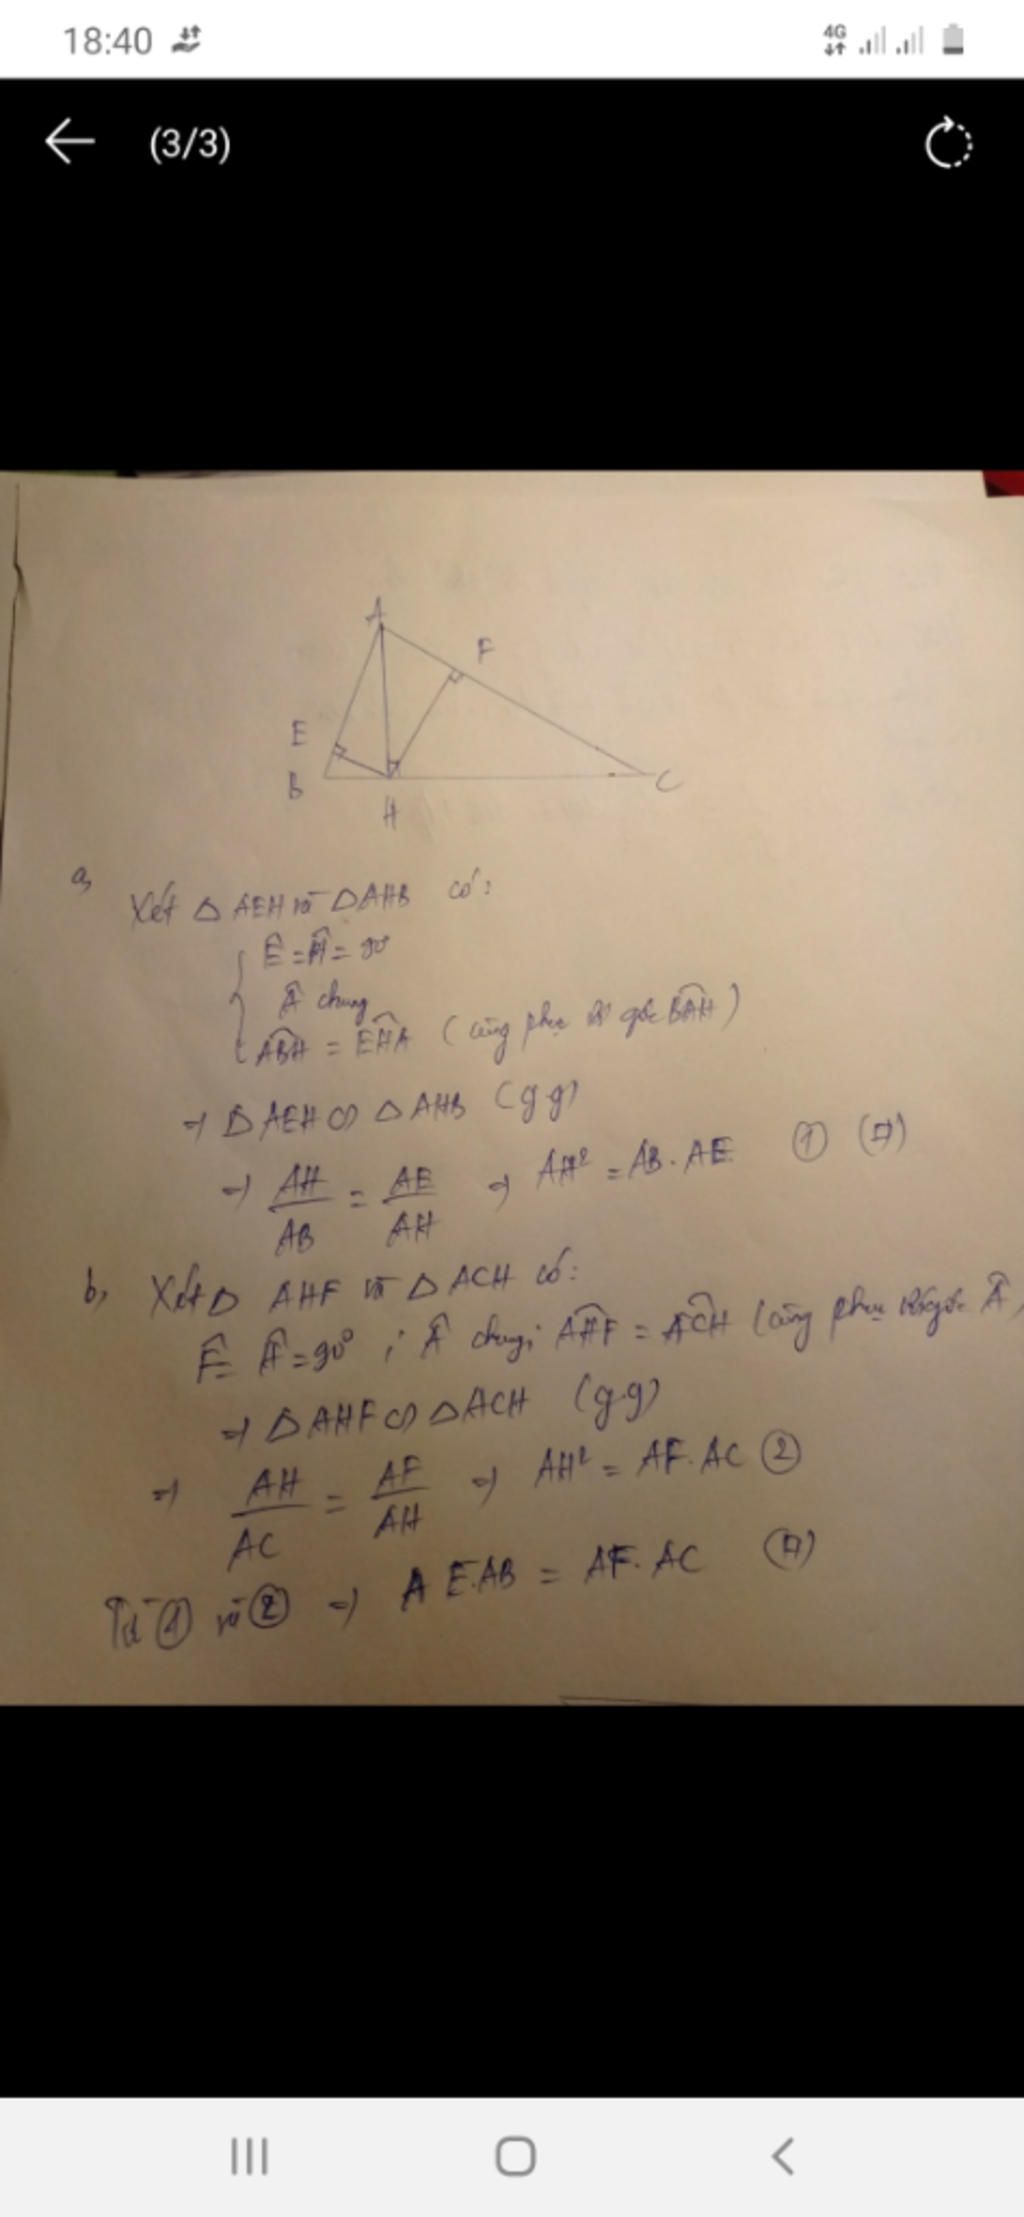 18:40
4G
(3/3)
A
F
E
B
H
C
a,
Xét △ AEH và △AHB có:
Ê = Ĥ = 90°
Â chung
ABH = EHA (cùng phụ với góc BAH)
⇒ △AEH ∽ △AHB (g.g)
⇒ AH/AB = AE/AH ⇒ AH² = AB.AE ①
b, Xét △ AHF và △ACH có:
F̂ = Ĥ = 90° ; Â chung; AHF = ACH (cùng phụ với góc Â)
⇒ △AHF ∽ △ACH (g.g)
⇒ AH/AC = AF/AH ⇒ AH² = AF.AC ②
Từ ① và ② ⇒ AE.AB = AF.AC